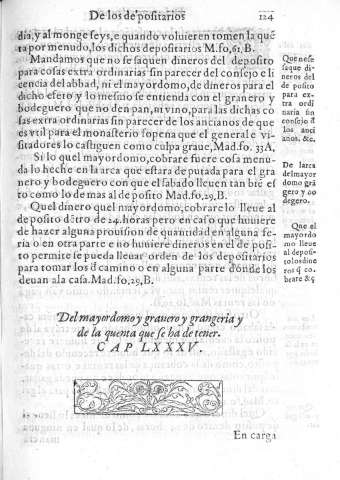 De los depositarios
124
dia, y al monge seys, e quando voluieren tomen la quẽ
ta por menudo, los dichos depositarios M. fo, 61, B.
Mandamos que no se saquen dineros del deposito
para cosas extra ordinarias sin parecer del consejo e li
cencia del abbad, ni el mayordomo, de dineros para el
dicho efeto y lo mesmo se entienda con el granero y
bodeguero que no den pan, ni vino, para las dichas co
sas extra ordinarias sin parecer de los ancianos de que
es vtil para el monasterio so pena que el general e vi-
sitadores lo castiguen como culpa graue, Mad. fo. 33A,
Si lo quel mayordomo, cobrare fuere cosa menu-
da lo heche en la arca que estara deputada para el gra
nero y bodeguero con que el sabado lleuen tan biẽ es
to como lo de mas al deposito Mad. fo, 29, B.
Quel dinero quel mayordomo, cobrare lo lleue al
de posito dẽtro de 24. horas pero en caso que huuiere
de hazer alguna prouision de quantidad en alguna fe-
ria o en otra parte e no huuiere dineros en el de posi-
to permite se pueda lleuar orden de los depositarios
para tomar los ď camino o en alguna parte donde los
deuan a la casa. Mad. fo, 29, B.
Que no se
saque di-
neros del
de posito
para ex-
tra ordi
naria sin
consejo ď
los anci
anos. &c.
De larca
del mayor
domo grã
gero y bo
degero.
Que el
mayordo
mo lleue
al depos-
to lo dine
ros q̃ co-
brare &c
Del mayordomo y granero y grangeria y
de la quenta que se ha de tener.
CAP LXXXV.
En carga